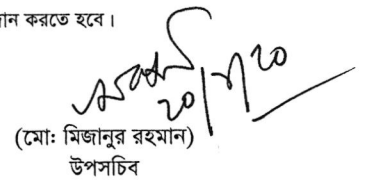 করতে হবে।
২০/৭/২০
(মোঃ মিজানুর রহমান)
উপসচিব